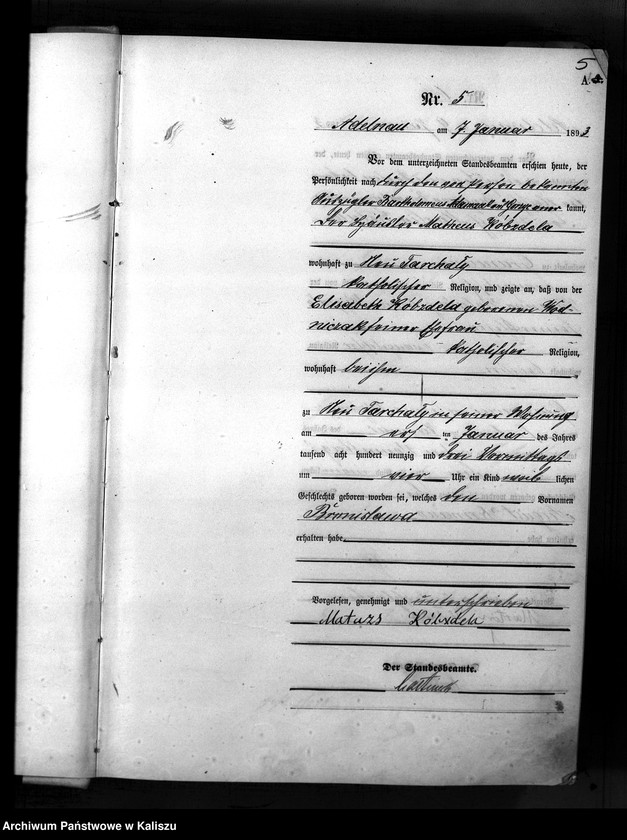 5
A.
Nr. 5
Adelnau am 7. Januar 1893
Vor dem unterzeichneten Standesbeamten erschien heute, der
Persönlichkeit nach durch den von Person bekannten
Auszügler Bartholomeus kannt,
der Häusler Matheus Kóbzdela
wohnhaft zu Neu Tarchaly
katholischer Religion, und zeigte an, daß von der
Elisabeth Kóbzdela geborenen Wod-
niczak seiner Ehefrau
katholischer Religion,
wohnhaft bei ihm
zu Neu Tarchaly in seiner Wohnung
am ersten Januar des Jahres
tausend acht hundert neunzig und drei Vormittags
um vier Uhr ein Kind weiblichen
Geschlechts geboren worden sei, welches den Vornamen
Bronislawa
erhalten habe.
Vorgelesen, genehmigt und unterschrieben
Mateusz Kóbzdela
Der Standesbeamte.
Archiwum Państwowe w Kaliszu